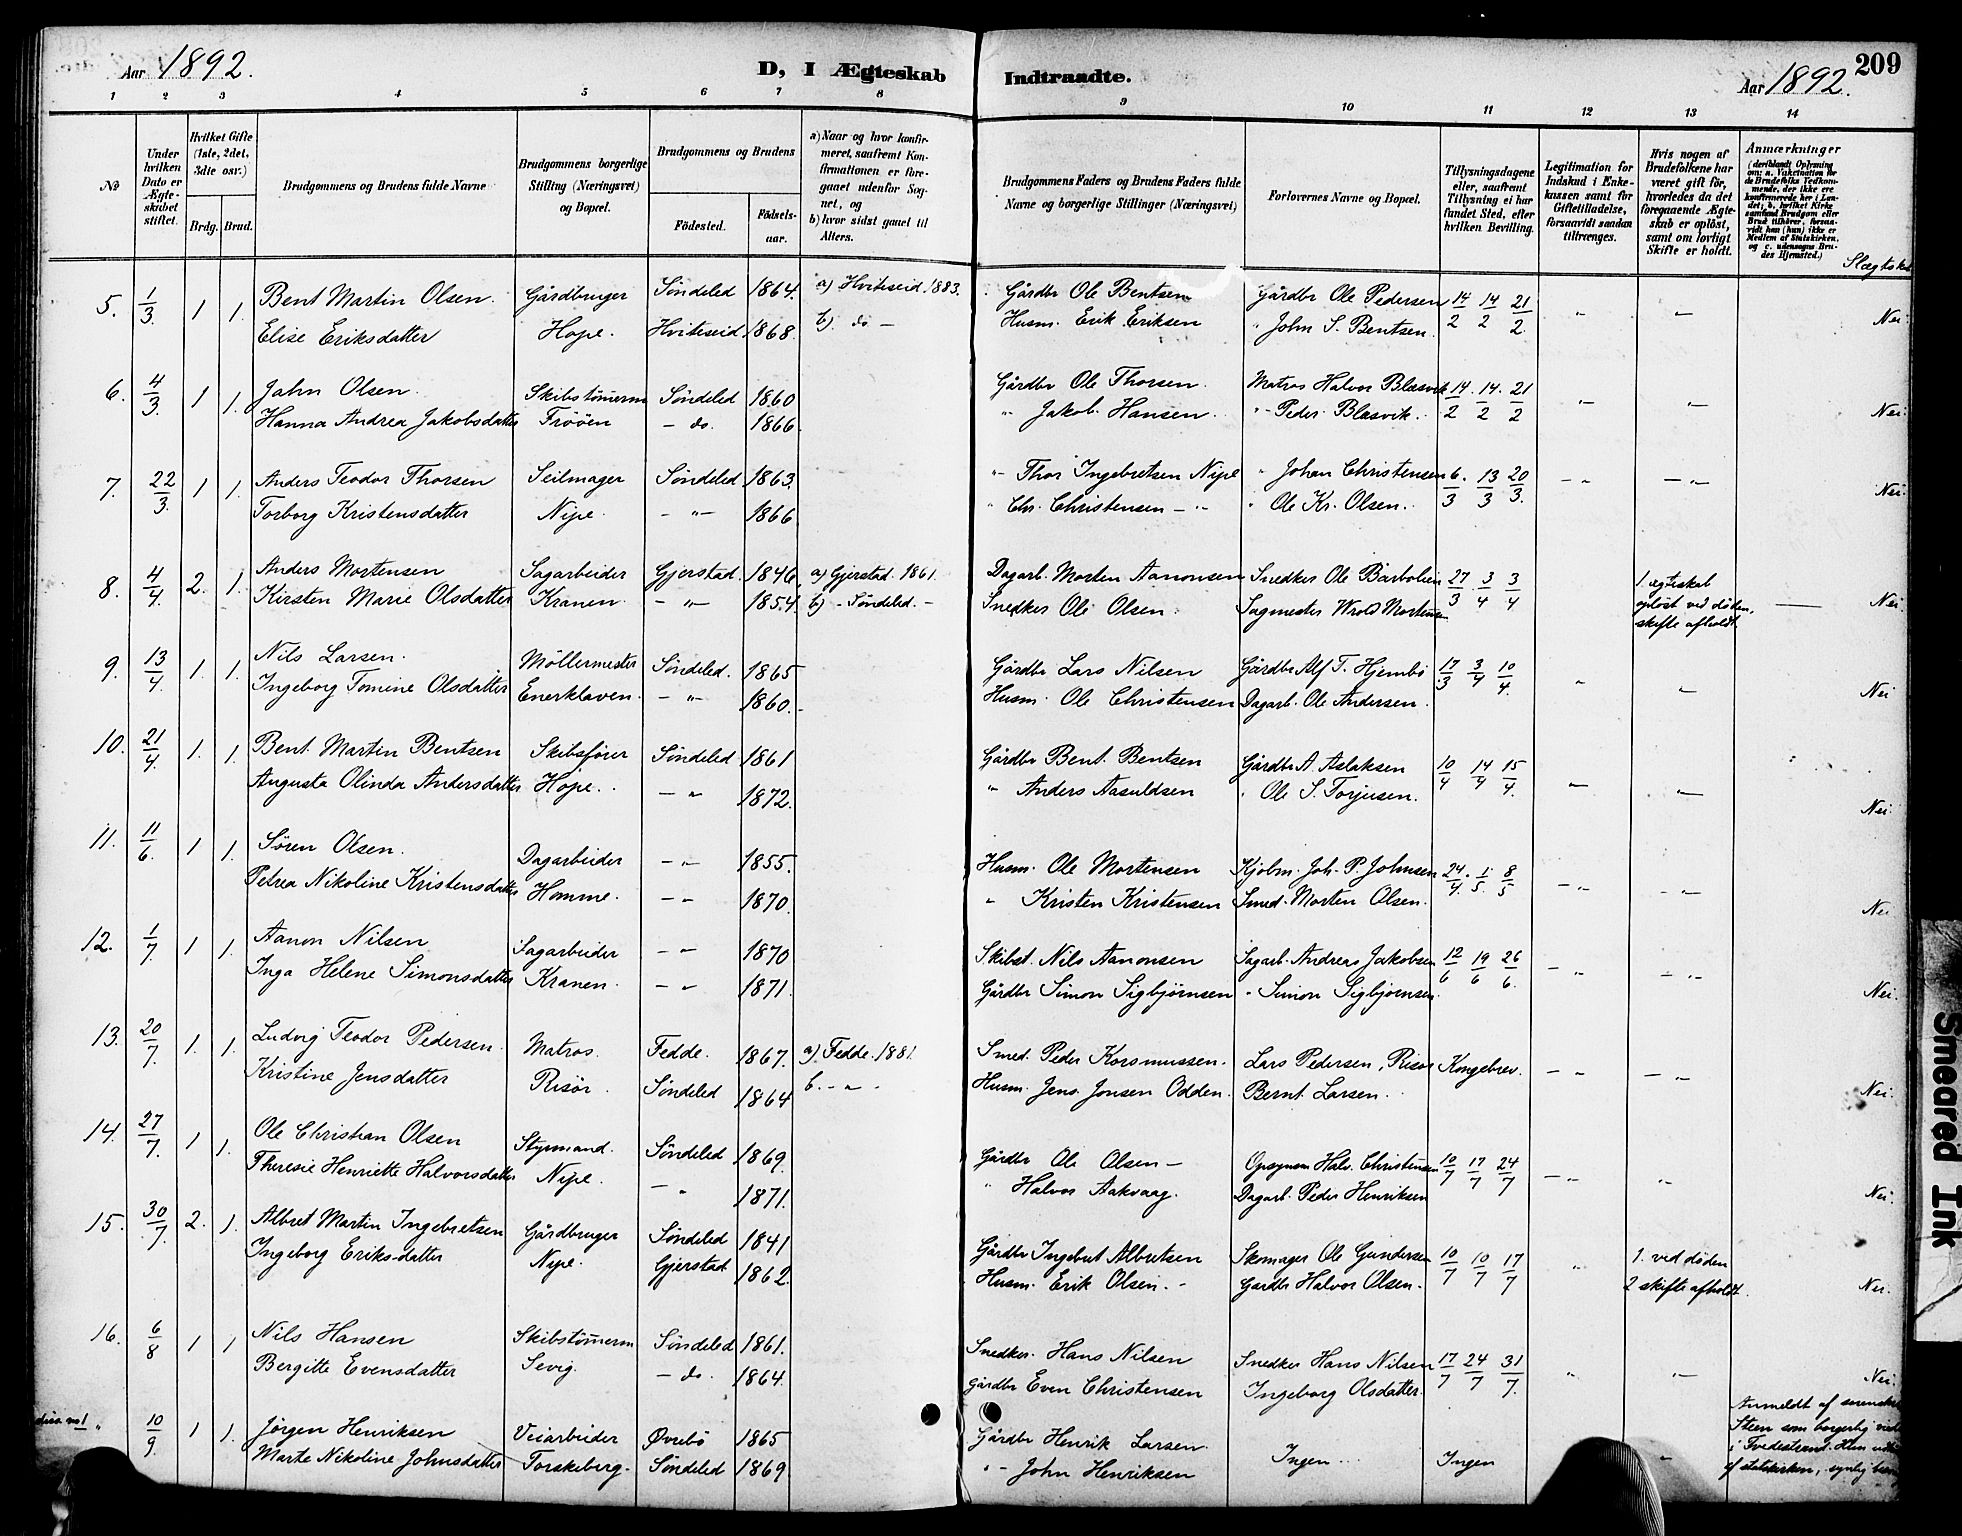 Aar 1892. D, I Ægteskab Indtraadte. Aar 1892. 209
1 2 3 4 5 6 7 8 9 10 11 12 13 14
No
Under hvilken Dato er Ægteskabet stiftet.
Hvilket Gifte (1ste, 2det, 3die osv.)
Brdg. Brud.
Brudgommens og Brudens fulde Navne
Brudgommens borgerlige Stilling (Næringsvei) og Bopæl.
Brudgommens og Brudens
Fødested. Fødselsaar.
a) Naar og hvor konfirmeret, saafremt Konfirmationen er foregaaet udenfor Sognet, og
b) hvor sidst gaaet til Alters.
Brudgommens Faders og Brudens Faders fulde Navne og borgerlige Stillinger (Næringsvei)
Forlovernes Navne og Bopæl.
Tillysningsdagene eller, saafremt Tillysning ei har fundet Sted, efter hvilken Bevilling.
Legitimation for Indskud i Enkekassen samt for Giftetilladelse, forsaavidt saadan tiltrænges.
Hvis nogen af Brudefolkene har været gift før, hvorledes da det foregaaende Ægteskab er opløst, samt om lovligt Skifte er holdt.
Anmærkninger
(deriblandt Oplysning om: a. Vaccination for de Brudefolks Vedkommende, der ikke ere konfirmerede her i Landet; b. hvilket Kirkesamfund Brudgom eller Brud tilhører, forsaavidt han (hun) ikke er Medlem af Statskirken, og c. udensogns Brudes Hjemsted.)
5. 1/3 1 1. Bent Martin Olsen. Gårdbruger Søndeled 1864. a) Hviteseid 1883. Gårdbr Ole Bentsen Gårdbr Ole Pedersen 14/2 14/2 21/2 " " Nei.
Elise Eriksdatter Hope. Hviteseid 1868. b) do — Husm. Erik Eriksen " John S. Bentsen.
6. 4/3 1 1. Jahn Olsen. Skibstømerm Søndeled 1860 Gårdbr Ole Thorsen. Matros Halvor Blæsvik 14/2 14/2 21/2 " " Nei.
Hanna Andrea Jakobsdatter Frøöen — do. 1866. " Jakob Hansen. " Peder Blæsvik.
7. 22/3 1 1. Anders Teodor Thorsen Seilmager Søndeled 1863. " Thor Ingebretsen Nipe " Johan Christensen 6/3 13/3 20/3 — " — " Nei.
Torborg Kristensdatter Nipe. — " — 1866 " Chr. Christensen — " " Ole Kr. Olsen.
8. 4/4 2. 1. Anders Mortensen Sagarbeider Gjerstad. 1846 a) Gjerstad. 1861. Dagarb. Morten Aanonsen Snedker Ole Bårbolien 27/3 3/4 3/4 1 ægteskab opløst ved døden, skifte afholdt — Nei.
Kirsten Marie Olsdatter Kranen. — " — 1854. b) - Søndeled. - Snedker Ole Olsen. Sagmester Wrold Mortensen
9. 13/4 1. 1. Nils Larsen. Møllermester Søndeled. 1865 Gårdbr Lars Nilsen Gårdbr Alf T. Hjembö 17/3 3/4 10/4 " " Nei
Ingeborg Tomine Olsdatter Enerklaven. — " — 1860. Husm. Ole Christensen Dagarb. Ole Andersen.
10. 21/4 1. 1. Bent Martin Bentsen Skibsfører Søndeled 1861 Gårdbr Bent Bentsen Gårdbr A. Aslaksen 10/4 14/4 15/4. " " Nei.
Augusta Olinda Andersdatter Hope. — " 1872. " Anders Aasuldsen " Ole S. Torjusen.
11. 11/6 1 1. Søren Olsen. Dagarbeider — " — 1855. Husm. Ole Mortensen Kjøbm. Joh. P. Johnsen 24/4. 1/5. 8/5 — " — " Nei
Petrea Nikoline Kristensdatter Homme. — " 1870. " Kristen Kristensen Smed. Morten Olsen.
12. 1/7 1 1. Aanon Nilsen Sagarbeider — " 1870 Skibst. Nils Aanonsen Sagarb. Andreas Jakobsen 12/6 19/6 26/6. — " — " Nei.
Inga Helene Simonsdatter Kranen. — " 1871. Gårdbr Simon Sigbjørnsen " Simon Sigbjørnsen.
13. 20/7 1. 1. Ludvig Teodor Pedersen. Matros. Fedde. 1867. a) Fedde. 1881. Smed. Peder Korsmussen. Lars Pedersen, Risør Kongebrev. — " — " Nei.
Kristine Jensdatter Risør. Søndeled 1864 b. — " - Husm. Jens Jonsen Odden. Bernt Larsen.
14. 27/7 1 1. Ole Christian Olsen Styrmand. Søndeled 1869. Gårdbr Ole Olsen — Opsynsm Halv. Christensen 10/7 17/7 24/7 — " " Nei.
Theresie Henriette Halvorsdatter Nipe. — " 1871. " Halvor Aakvaag. Dagarb. Peder Henriksen
15. 30/7. 2. 1. Albret Martin Ingebretsen Gårdbruger Søndeled 1841 Gårdbr Ingebret Albretsen Skomager Ole Gundersen 10/7 10/7 17/7 " 1. ved døden Nei.
Ingeborg Eriksdatter Nipe. Gjerstad 1862. Husm. Erik Olsen. - Gårdbr Halvor Olsen. 2 skifte afholdt.
16. 6/8 1 1 Nils Hansen Skibstømerm Søndeled 1861. Snedker. Hans Nilsen Snedker Hans Nilsen 17/7 24/7 31/7. " " Nei
Bergitte Evensdatter Sevig. — do. 1864. Gårdbr Even Christensen Ingeborg Olsdatter.
diss. no 1 " 10/9. 1 1. Jørgen Henriksen Veiarbeider Øvrebö 1865 Gårdbr Henrik Larsen. Ingen Ingen "
Marte Nikoline Johnsdatter Torskeberg. Søndeled 1869 " - John Henriksen
Anmeldt af
Steen som borgerlig viet
i Tvedestrand.
af statskirken,
Smeared Ink